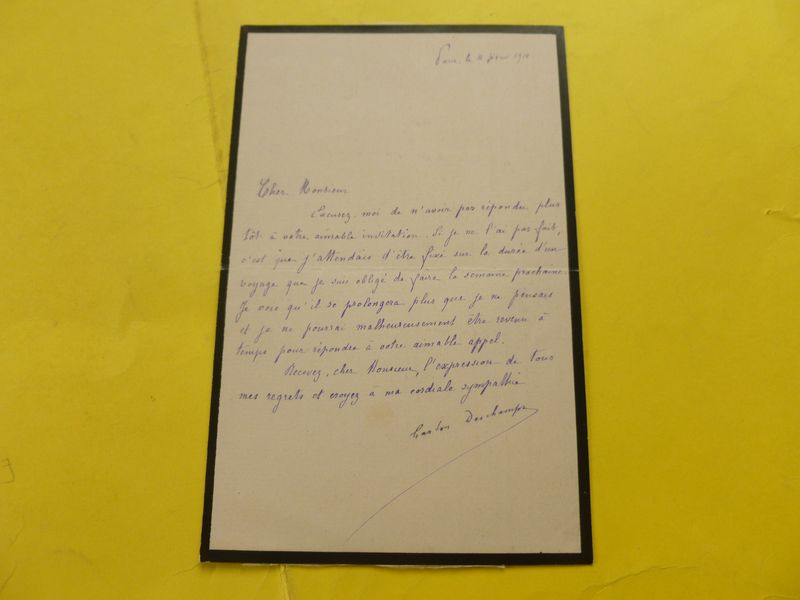 Paris, le 11 1910
Cher Monsieur
Excusez moi de n'avoir pas répondu plus
tôt à votre aimable invitation. Si je ne l'ai pas fait,
c'est que j'attendais d'être fixé sur la durée d'un
voyage que je suis obligé de faire la semaine prochaine.
Je vois qu'il se prolongera plus que je ne pensais
et je ne pourrai malheureusement être revenu à
temps pour répondre à votre aimable appel.
Recevez, cher Monsieur, l'expression de tous
mes regrets et croyez à ma cordiale sympathie
Gaston Deschamps